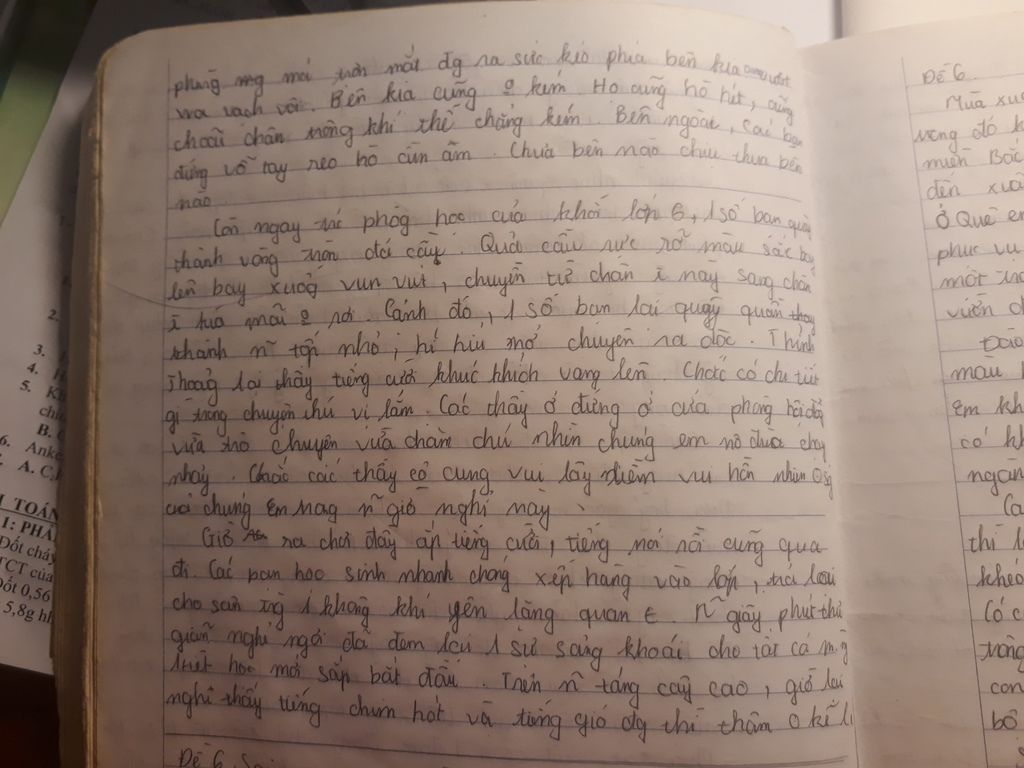 phùng mg má, tròn mắt đg ra sức kéo phía bên kia
wa vạch vôi. Bên kia cũng o kém. Họ cũng hò hét, cũng
choãi chân trông khí thế chẳng kém. Bên ngoài, các bạn
đứng vỗ tay reo hò cùn ầm. Chưa bên nào chịu thua bên
nào.
Còn ngay trc phòg học của khối lớp 6, 1 số bạn quây
thành vòng tròn đá cầu. Quả cầu rực rỡ màu sắc bay
lên bay xuốg vun vút, chuyền từ chân i này sang chân
i kia mãi o rơi. Cánh đó, 1 số bạn lại quây quần
thành n~ tốp nhỏ, hí híu mở chuyện ra đọc. Thỉnh
Thoảg lại thấy tiếng cười khúc khích vang lên. Chắc có chi tiết
gì trong chuyện thú vị lắm. Các thầy ở đứng ở cửa phòng hội đồg
vừa trò chuyện vừa chăm chú nhìn chúng em nô đùa chạy
nhảy. Chắc các thấy cô cung vui lây niềm vui hồn nhiên
của chúng em nag n~ giờ nghỉ này.
Giờ ra chơi đầy ắp tiếng cười, tiếng nói rồi cũng qua
đi. Các bạn học sinh nhanh chóng xếp hàng vào lớp, trả lại
cho sân trg 1 không khí yên lặng quen t. N~ giây phút thư
giãn nghỉ ngơi đã đem lại 1 sự sảng khoái cho tất cả m.n
1 tiết học mới sắp bắt đầu. Trên n~ tảng cây cao, giờ lại
nghe thấy tiếng chim hót và tiếng gió đg thì thầm
Đề 6
Đề 6.
Mùa xu
trong đó h
miền Bắc
đến xuâ
Ở Quê em
phục vụ
một
vườn
Đào
màu
Em kh
có h
ngàn
Cà
thì l
khéo
Có c
trông
con
bố
2.
3.
4. H
5. Kh
B.
6. Anke
A. C
TOÁN
1: PHẢ
Đốt cháy
TCT của
Đốt 0,56
5,8g hh